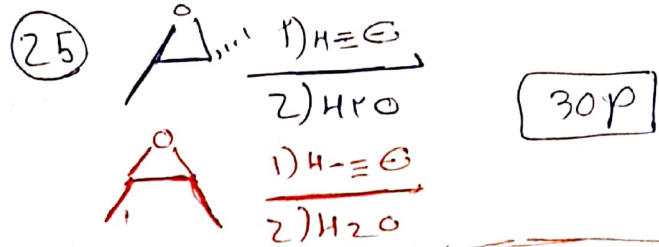 25
O
1) H≡⊖
2) H2O
30p
O
1) H-≡⊖
2) H2O